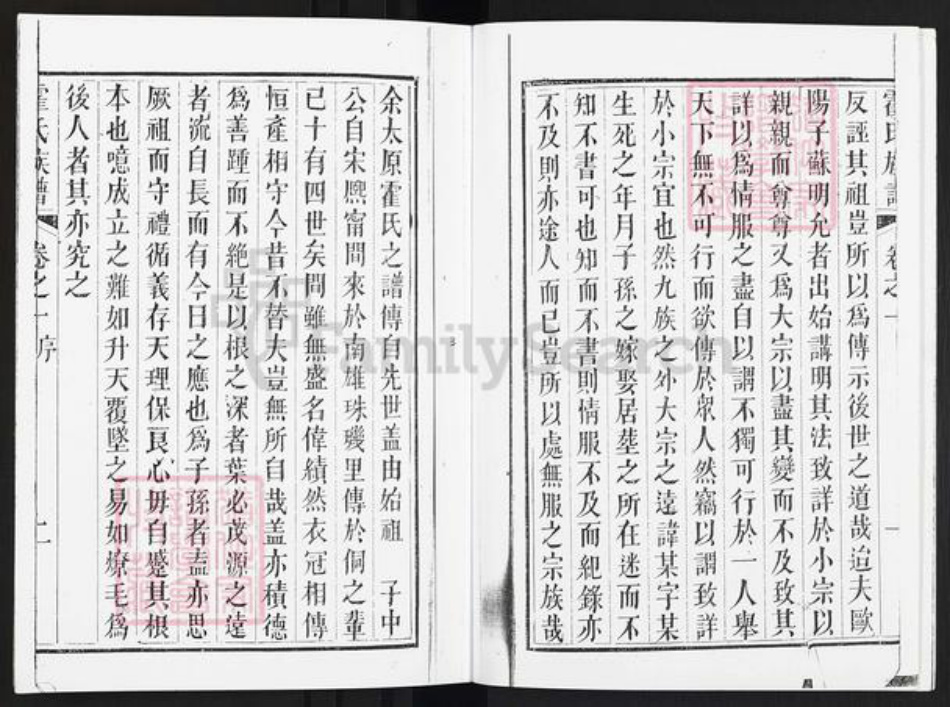 霍氏族譜 卷之一
反誣其祖豈所以爲傳示後世之道哉迨夫歐
陽子蘇明允者出始講明其法致詳於小宗以
親親而尊尊又爲大宗以盡其變而不及致其
詳以爲情服之盡自以謂不獨可行於一人舉
天下無不可行而欲傳於衆人然竊以謂致詳
於小宗宜也然九族之外大宗之遠諱某字某
生死之年月子孫之嫁娶居塟之所在迷而不
知不書可也知而不書則情服不及而紀錄亦
不及則亦途人而已豈所以處無服之宗族哉
余太原霍氏之譜傳自先世盖由始祖 子中
公自宋熈甯間來於南雄珠璣里傳於侗之輩
已十有四世矣間雖無盛名偉績然衣冠相傳
恒產相守今昔不替夫豈無所自哉盖亦積德
爲善踵而不絶是以根之深者葉必茂源之遠
者流自長而有今日之應也爲子孫者盍亦思
厥祖而守禮循義存天理保良心毋自蹙其根
本也噫成立之難如升天覆墜之易如燎毛爲
後人者其亦究之
霍氏族譜 卷之一 序 二
FamilySearch